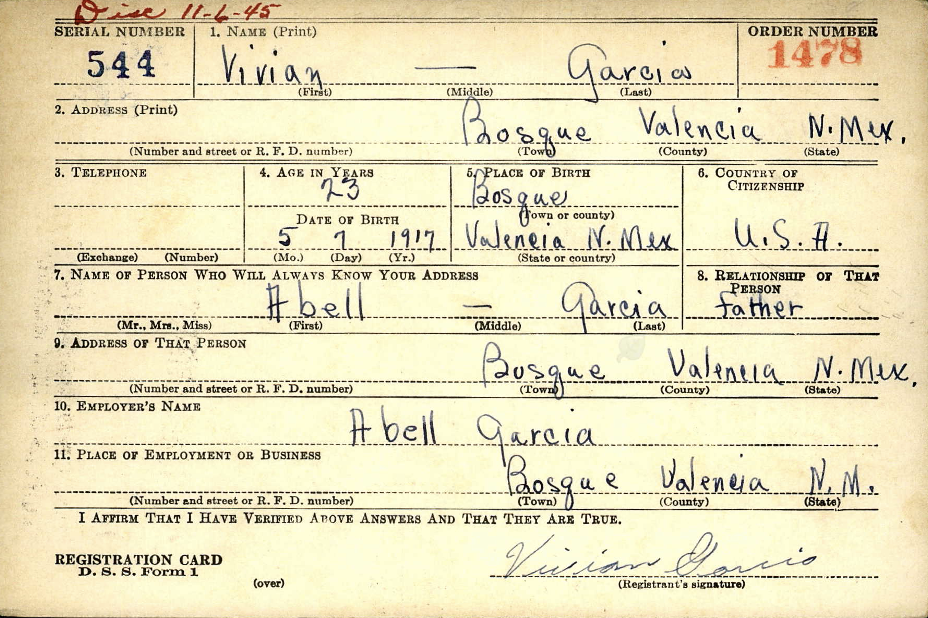 Disc 11-6-45
SERIAL NUMBER 1. NAME (Print) ORDER NUMBER
544 Vivian — Garcia 1478
(First) (Middle) (Last)
2. ADDRESS (Print)
Bosque Valencia N. Mex.
(Number and street or R. F. D. number) (Town) (County) (State)
3. TELEPHONE 4. AGE IN YEARS 5. PLACE OF BIRTH 6. COUNTRY OF CITIZENSHIP
23 Bosque
DATE OF BIRTH (Town or county)
5 7 1917 Valencia N. Mex U.S.A.
(Exchange) (Number) (Mo.) (Day) (Yr.) (State or country)
7. NAME OF PERSON WHO WILL ALWAYS KNOW YOUR ADDRESS 8. RELATIONSHIP OF THAT PERSON
Abell — Garcia father
(Mr., Mrs., Miss) (First) (Middle) (Last)
9. ADDRESS OF THAT PERSON
Bosque Valencia N. Mex.
(Number and street or R. F. D. number) (Town) (County) (State)
10. EMPLOYER'S NAME
Abell Garcia
11. PLACE OF EMPLOYMENT OR BUSINESS
Bosque Valencia N. M.
(Number and street or R. F. D. number) (Town) (County) (State)
I AFFIRM THAT I HAVE VERIFIED ABOVE ANSWERS AND THAT THEY ARE TRUE.
REGISTRATION CARD Vivian Garcia
D. S. S. Form 1
(over) (Registrant's signature)